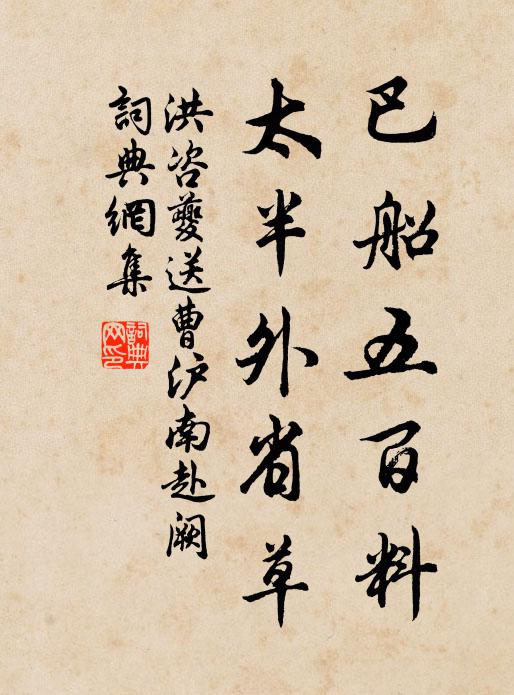 巴船五百料
太半外省草
洪咨夔送曹沪南赴阙
詞典網集
詞典網印